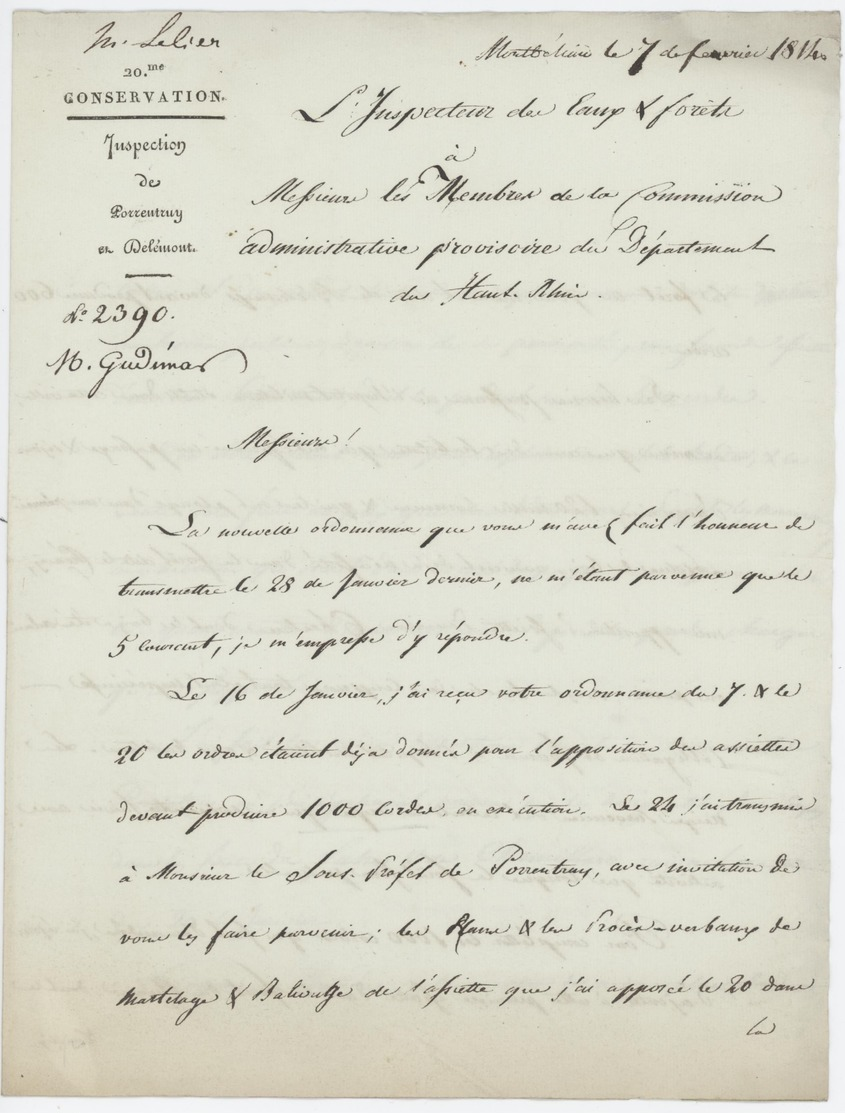 M. Lelier
20.me
CONSERVATION.
Inspection
de
Porrentruy
et Delémont.
N.o 2390.
M. Gudiman
Montbéliard le 7 de fevrier 1814.
L'Inspecteur des Eaux & forêts
à
Messieurs les Membres de la Commission
administrative provisoire du Département
du Haut-Rhin.
Messieurs!
La nouvelle ordonnance que vous m'avez fait l'honneur de
transmettre le 28 de Janvier dernier, ne m'étant parvenue que le
5 courant, je m'empresse d'y répondre.
Le 16 de Janvier, j'ai reçu votre ordonnance du 7. & le
20 les ordres étaient déja donnés pour l'apposition des assiettes
devant produire 1000 Cordes, en exécution. Le 24 j'ai transmis
à Monsieur le Sous-Préfet de Porrentruy, avec invitation de
vous les faire parvenir; les Plans & les Procès-verbaux de
Martelage & Balivage de l'assiette que j'ai apposée le 20 dans
la